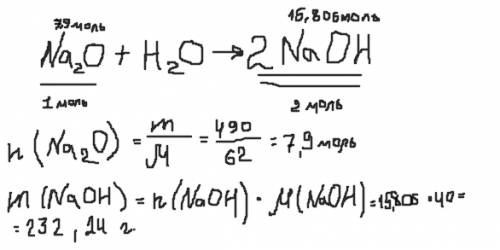 7,9 моль 15,806 моль
Na₂O + H₂O → 2 NaOH
1 моль 2 моль
n (Na₂O) = m/M = 490/62 = 7,9 моль
m (NaOH) = n (NaOH) · M (NaOH) = 15,806 · 40 =
= 232, 24 г.